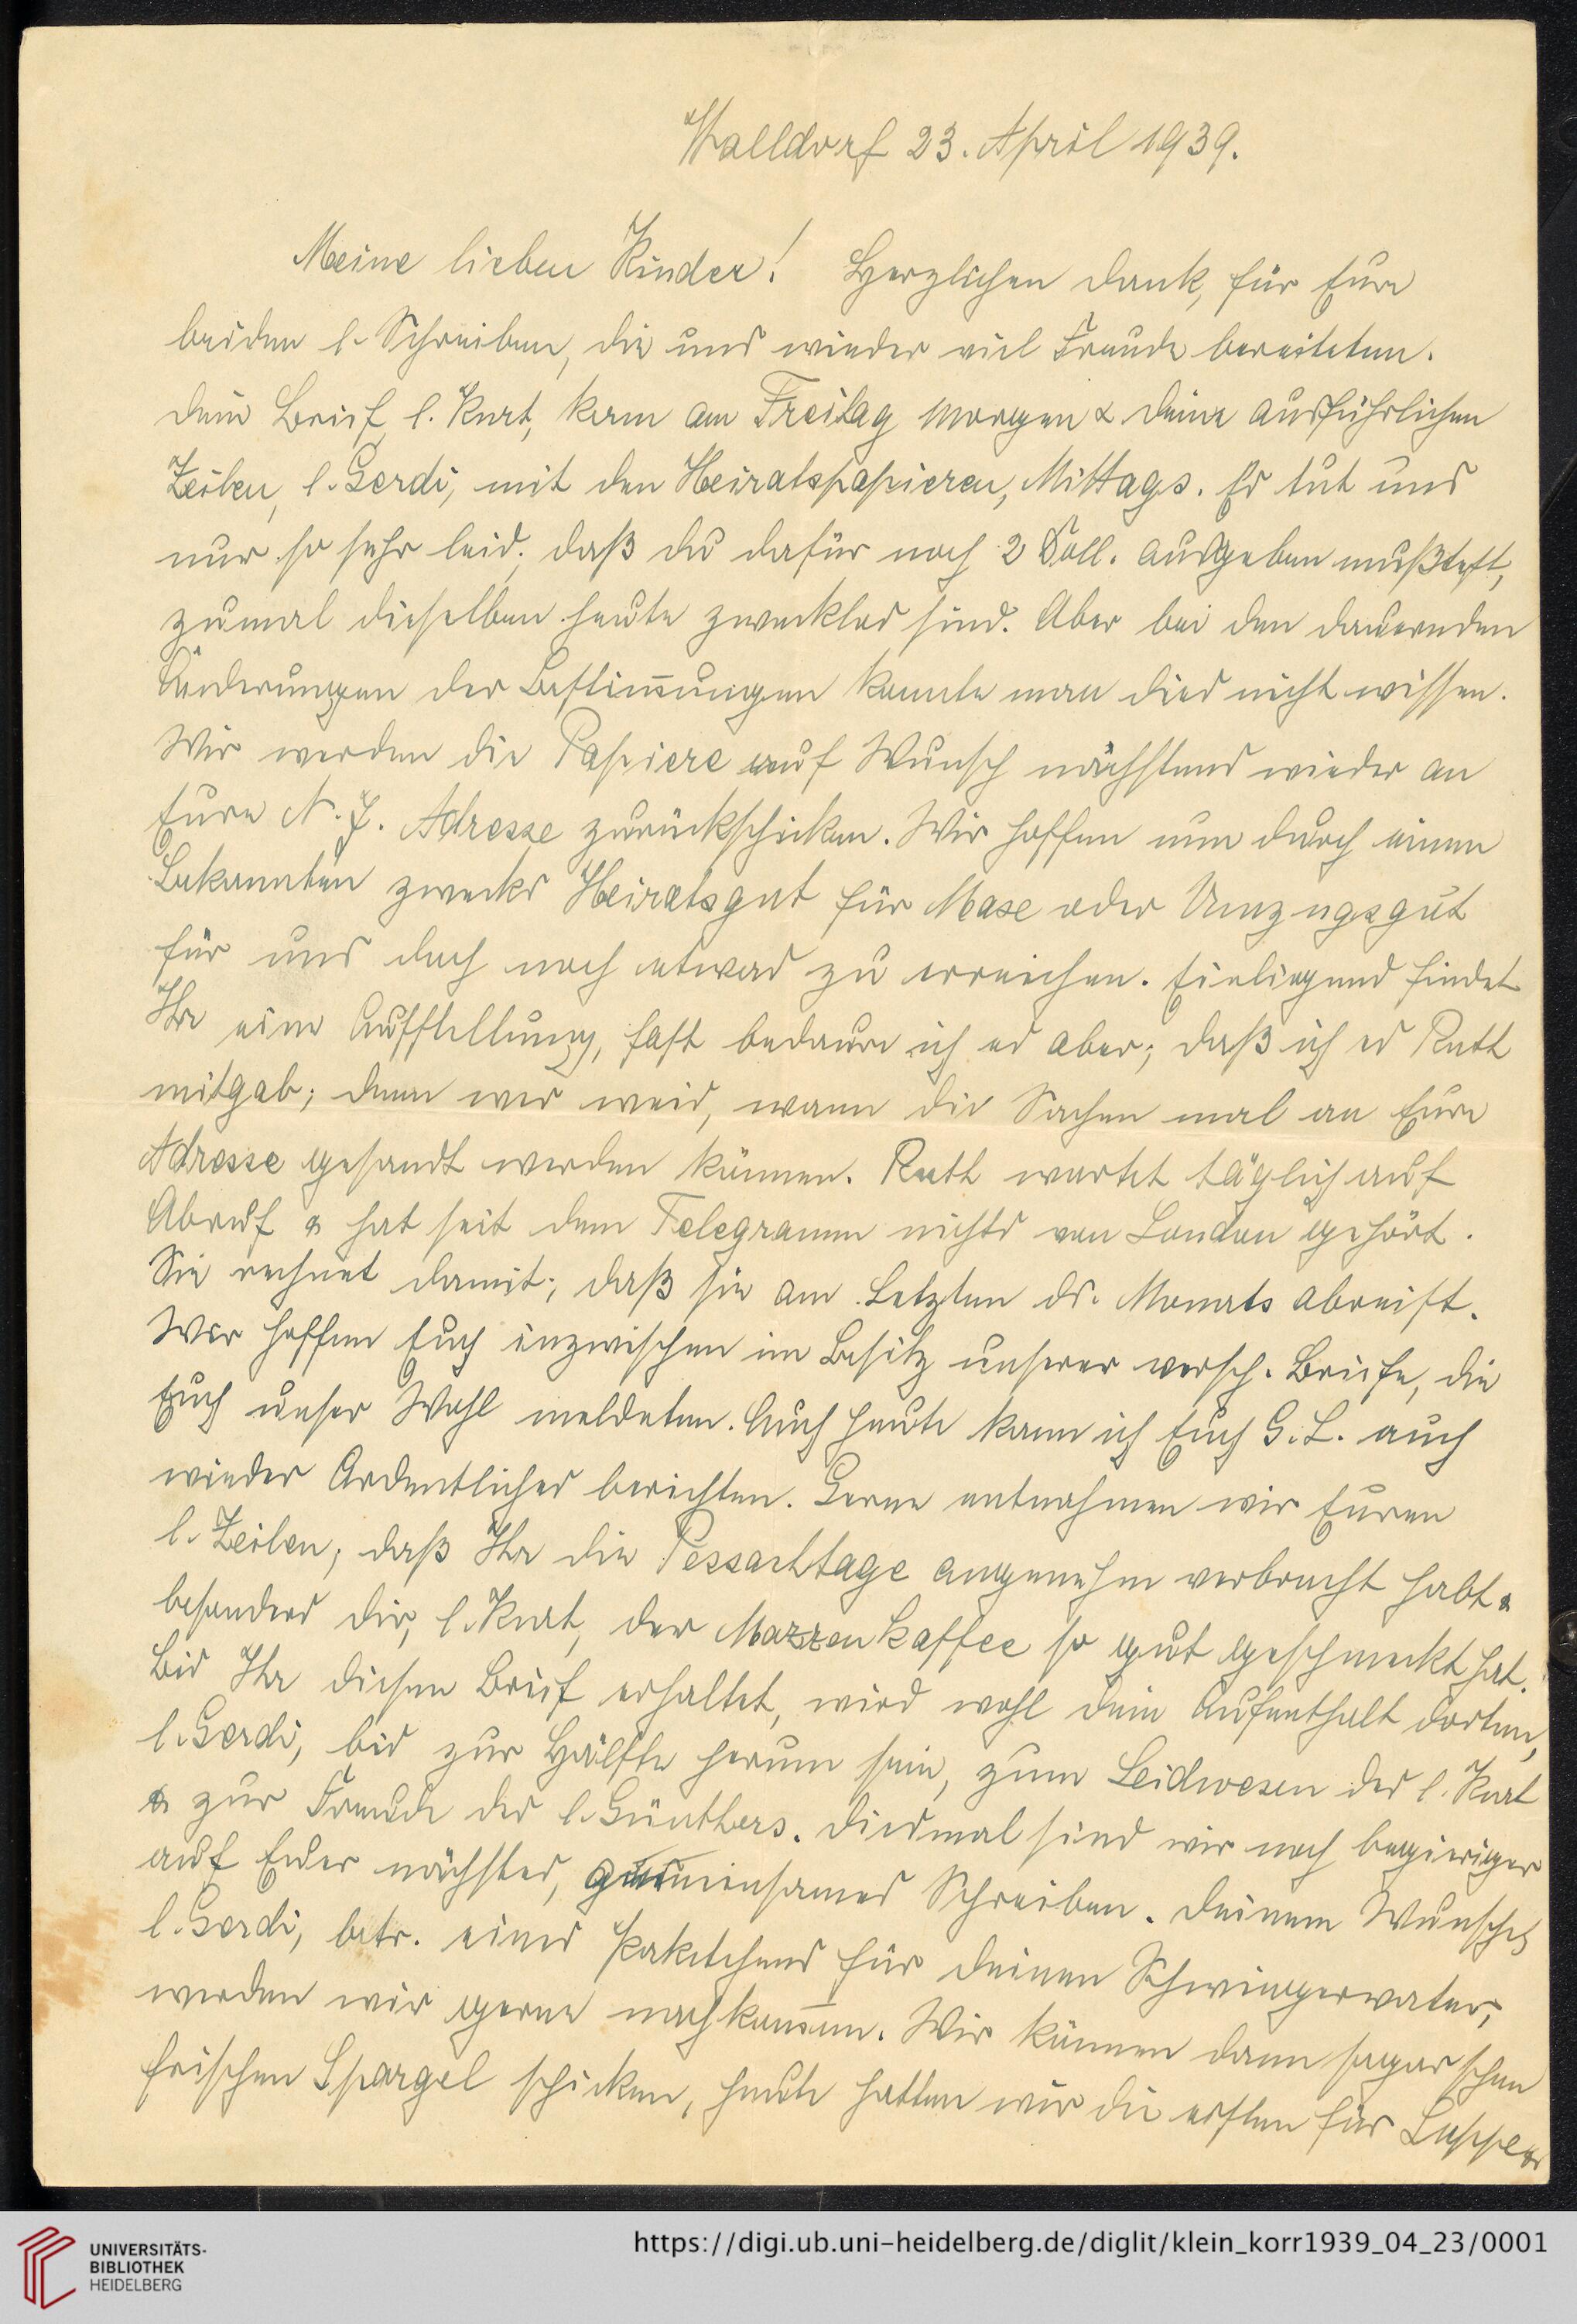 Walldorf 23. April 1939.
Meine lieben Kinder! Herzlichen Dank, für Eure
beiden l. Schreiben, die uns wieder viel Freude bereiteten.
Dein Brief, l. Kurt, kam am Freitag Morgen & Deine ausführlichen
Zeilen, l. Gerdi, mit den Heiratspapieren, Mittags. Es tut uns
nur so sehr leid, daß Du dafür noch 2 Doll. ausgeben mußtest,
zumal dieselben heute zwecklos sind. Aber bei den dauernden
Änderungen der Bestim̄ungen konnte man dies nicht wissen.
Wir werden die Papiere auf Wunsch nächstens wieder an
Eure N. J. Adresse zurückschicken. Wir hoffen nun durch einen
Bekannten zwecks Heiratsgut für Mase oder Umzugsgut
für uns doch noch etwas zu erreichen. Einliegend findet
Ihr eine Aufstellung, fast bedaure ich es aber, daß ich es Ruth
mitgab; denn wer weis, wann die Sachen mal an Eure
Adresse gesandt werden können. Ruth wartet täglich auf
Abruf & hat seit dem Telegramm nichts von London gehört.
Sie rechnet damit, daß sie am Letzten ds. Monats abreist.
Wir hoffen Euch inzwischen im Besitz unserer versch. Briefe, die
Euch unser Wohl meldeten. Auch heute kann ich Euch G. L. auch
wieder Ordentliches berichten. Gerne entnahmen wir Euren
l. Zeilen, daß Ihr die Pessachtage angenehm verbracht habt &
besonders Dir, l. Kurt, der Mazzenkaffee so gut geschmeckt hat.
Bis Ihr diesen Brief erhaltet, wird wohl Dein Aufenthalt dorten,
l. Gerdi, bis zur Hälfte herum sein, zum Leidwesen des l. Kurt
& zur Freude der l. Günthers. Diesmal sind wir noch begieriger
auf Euer nächstes, gemeinsames Schreiben. Deinem Wunsche,
l. Gerdi, betr. eines Paketchens für Deinen Schwiegervater,
werden wir gerne nachkom̄en. Wir können dann sogar schon
frischen Spargel schicken, heute hatten wir die ersten für Suppe &
UNIVERSITÄTS-
BIBLIOTHEK
HEIDELBERG
https://digi.ub.uni-heidelberg.de/diglit/klein_korr1939_04_23/0001